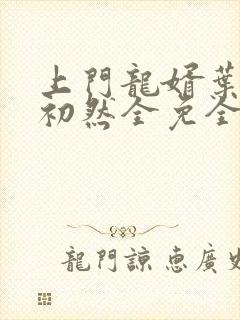 上門龍婿葉
初然全免全
龍門諒惠廣